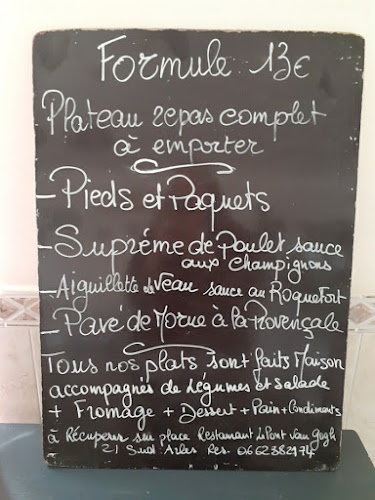 Formule 13€
Plateau repas complet
à emporter
- Pieds et Paquets
- Supréme de Poulet sauce
aux Champignons
- Aiguillette de Veau sauce au Roquefort
- Pavé de Morue à la Provençale
Tous nos plats sont faits Maison
accompagnés de Légumes et Salade
+ Fromage + Dessert + Pain + Condiments
à Récuperer sur place Restaurant Le Pont Van Gogh
21 Sud Arles Res. 0662382974